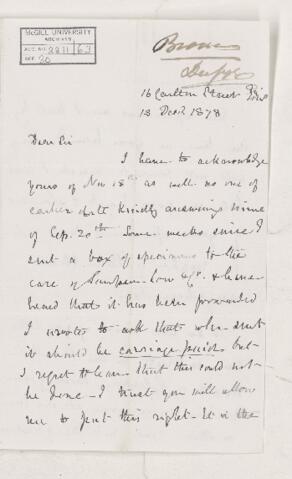 McGILL UNIVERSITY
ARCHIVES
ACC. NO. 2211 63
REF. 20
Brown
16 Carlton Street
13 Decr 1878
Dear Sir
I have to acknowledge
yours of Nov 18th as well as one of
earlier date kindly answering mine
of Sep. 20th Some weeks since I
sent a box of specimens to the
care of Sampson Low & Co. & have
heard that it has been forwarded
I wrote to ask that when sent
it should be carriage paid but
I regret to learn that this could not
be done - I trust you will allow
me to put this right - It is the